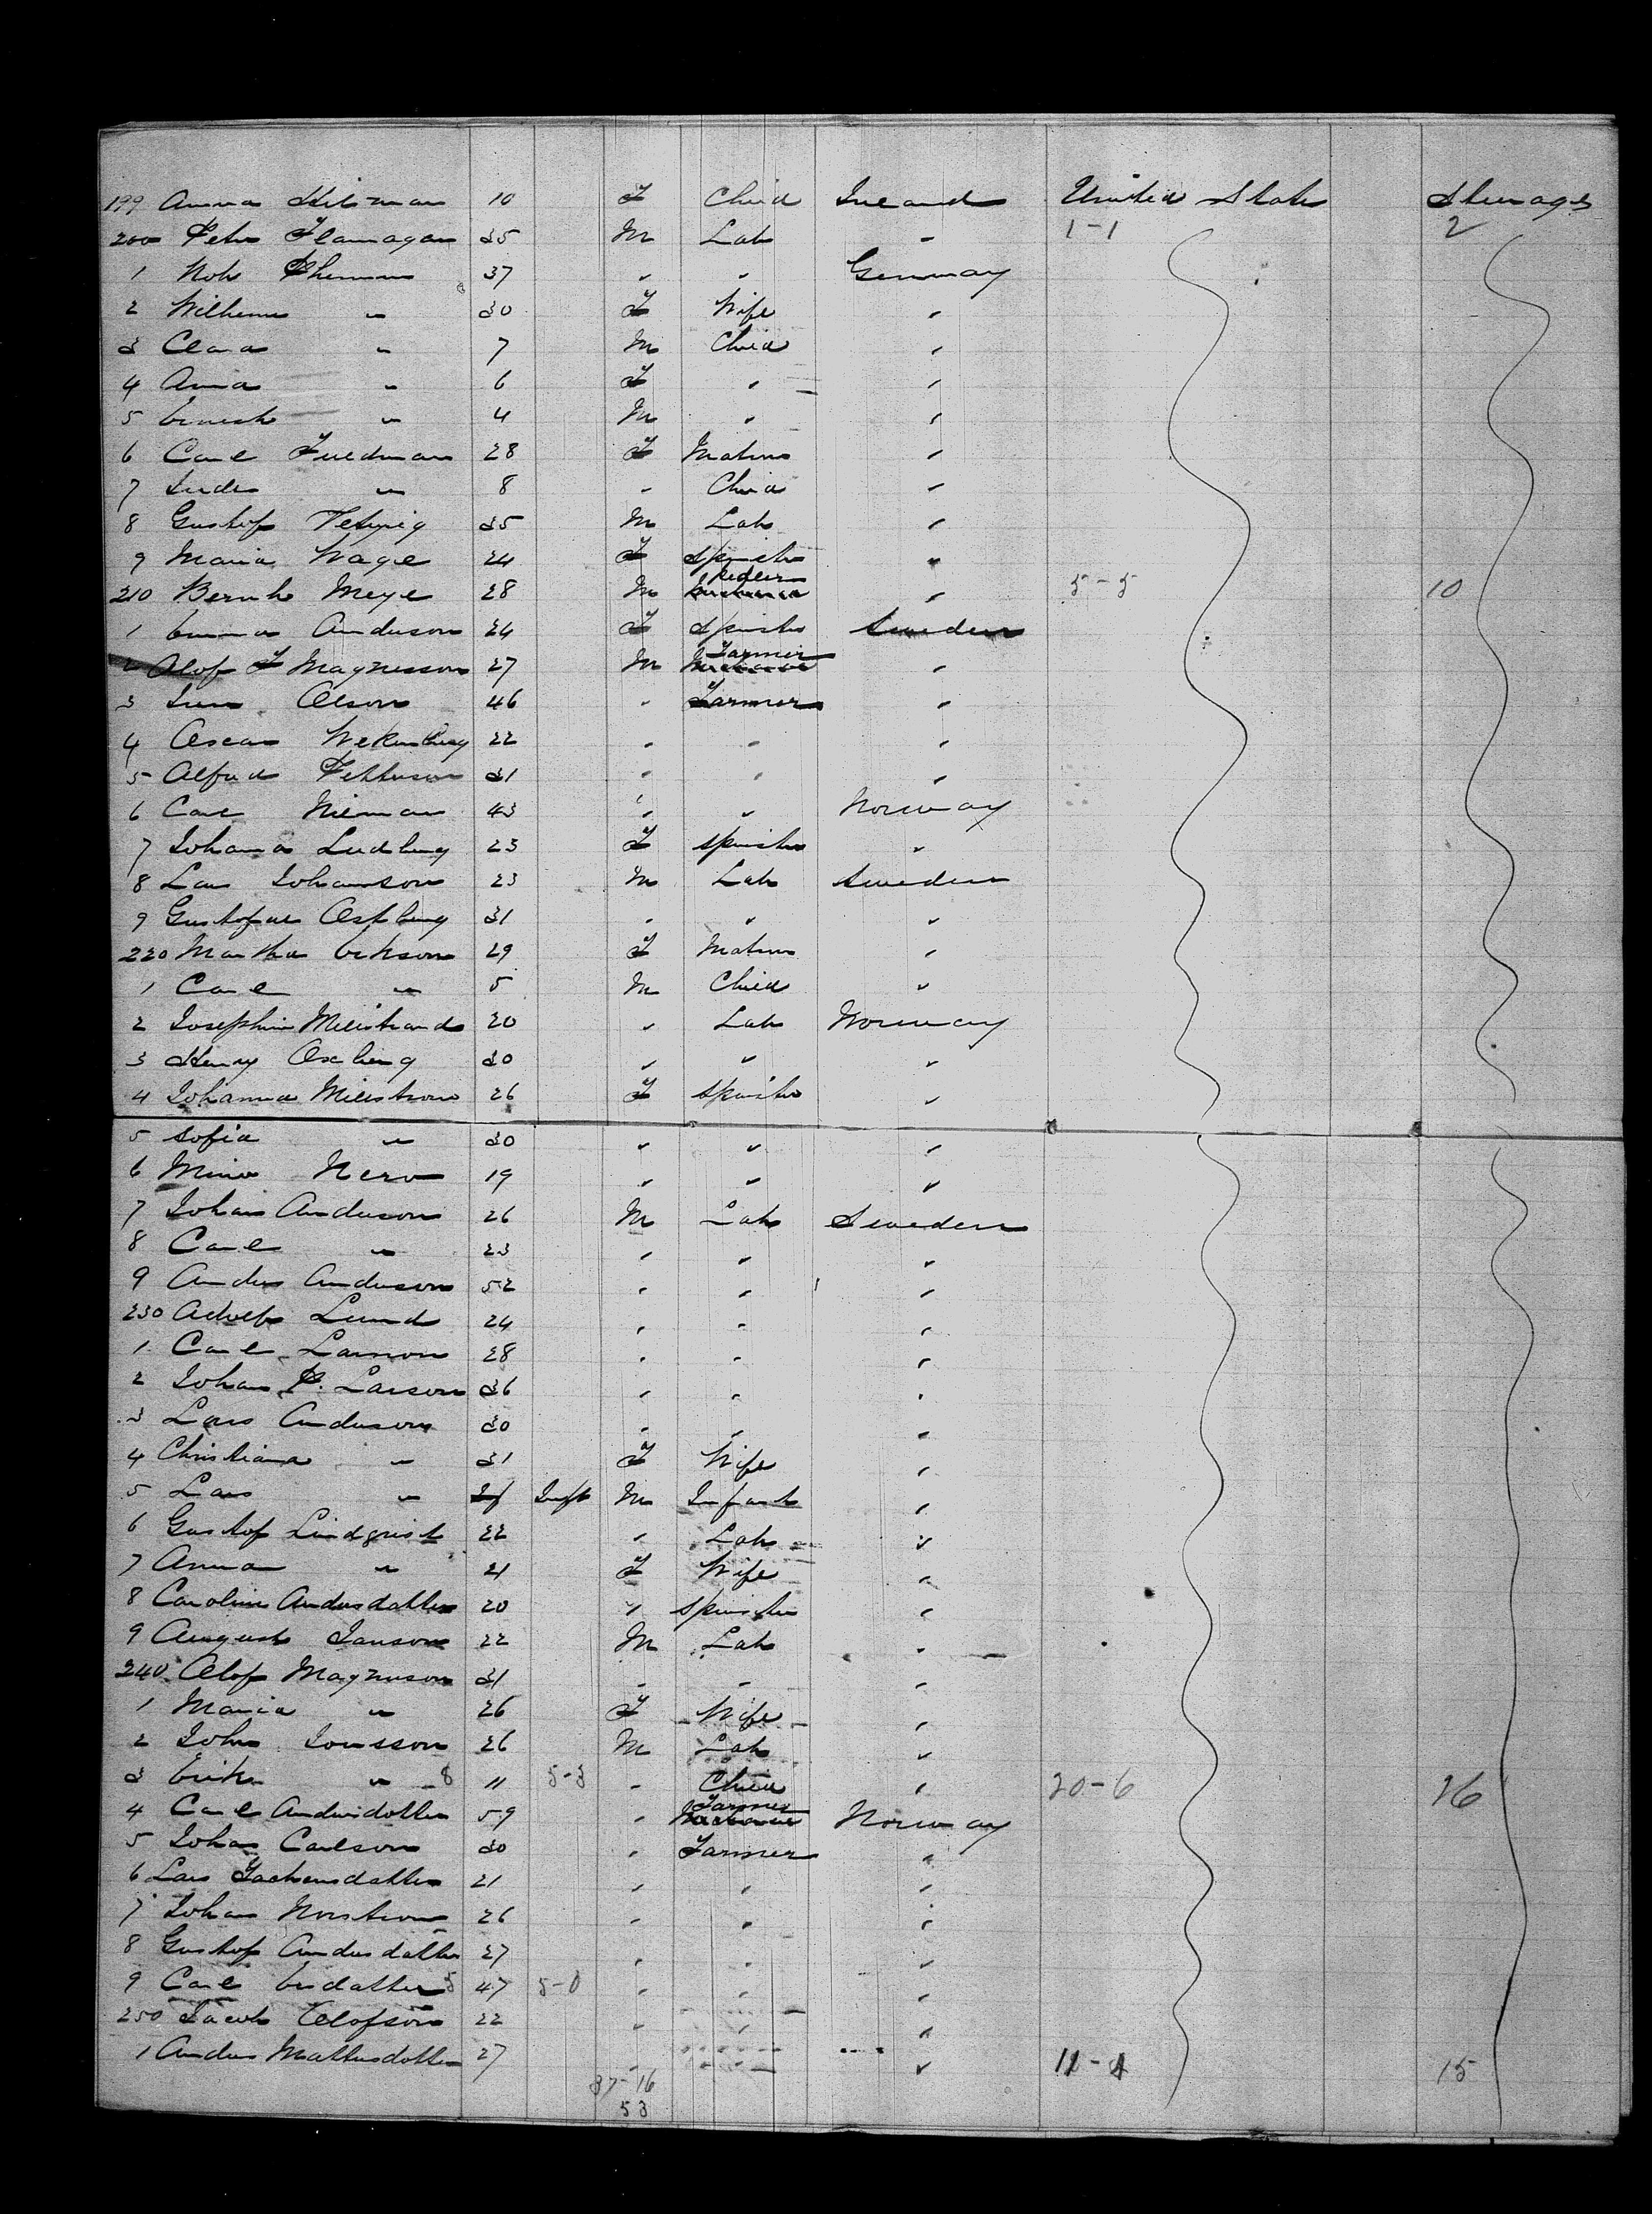 199 Anna Hitzman 10 F Child Ireland United States Steerage
200 Peter Flannagan 35 M Lab " 1-1 2
1 37 " " Germany
2 Wilhemn " 30 F Wife "
3 Clara " 7 M Child "
4 Anna " 6 F " "
5 Ernest " 4 M " "
6 Carl Friedman 28 F Matron "
7 " 8 " Child "
8 Gustof 35 M Lab "
9 Maria Wage 24 F Spinster "
210 Bernh Meye 28 M " 5-5 10
1 Emma Anderson 24 F Spinster Sweden
2 Olof F Magnusson 27 M Farmer "
3 Olson 46 " Farmer "
4 Oscar 22 " " "
5 Alfred Petterson 31 " " "
6 Carl Nieman 43 " " Norway
7 Johana Ludberg 23 F Spinster "
8 Lars Johanson 23 M Lab Sweden
9 Gustofve Ostberg 31 " " "
220 Martha Erikson 29 F Matron "
1 Carl " 5 M Child "
2 Josephin Milistrand 20 " Lab Norway
3 Henry Oxberg 30 " " "
4 Johanna Milistrom 26 F Spinster "
5 Sofia " 30 " " "
6 Mina Nero 19 " " "
7 Johan Anderson 26 M Lab Sweden
8 Carl " 23 " " "
9 Anders Anderson 52 " " "
230 Adolf Lund 24 " " "
1 Carl Larson 28 " " "
2 Johan P. Larson 36 " " "
3 Lars Anderson 30 " " "
4 Christiana " 31 F Wife "
5 Lars " Inft M Infant "
6 Gustof Lindqrist 22 " Lab "
7 Anna " 21 F Wife "
8 Caroline Andersdatter 20 " Spinster "
9 August Janson 22 M Lab "
240 Olof Magnuson 31 " " "
1 Maria " 26 F Wife "
2 John Jonsson 26 M Lab "
3 Erik " 8 11 5-3 " Child " 20-6 26
4 Carl Andersdotter 59 " Farmer Norway
5 Johan Carlson 30 " Farmer "
6 Lars 21 " " "
7 Johan Norstrom 26 " " "
8 Gustof Andersdatter 27 " " "
9 Carl Ersdatter 5 47 5-0 " " "
250 Jacob Olofson 22 " " "
1 Anders Mattusdotter 27 " " " 11-4 15
37-16
53